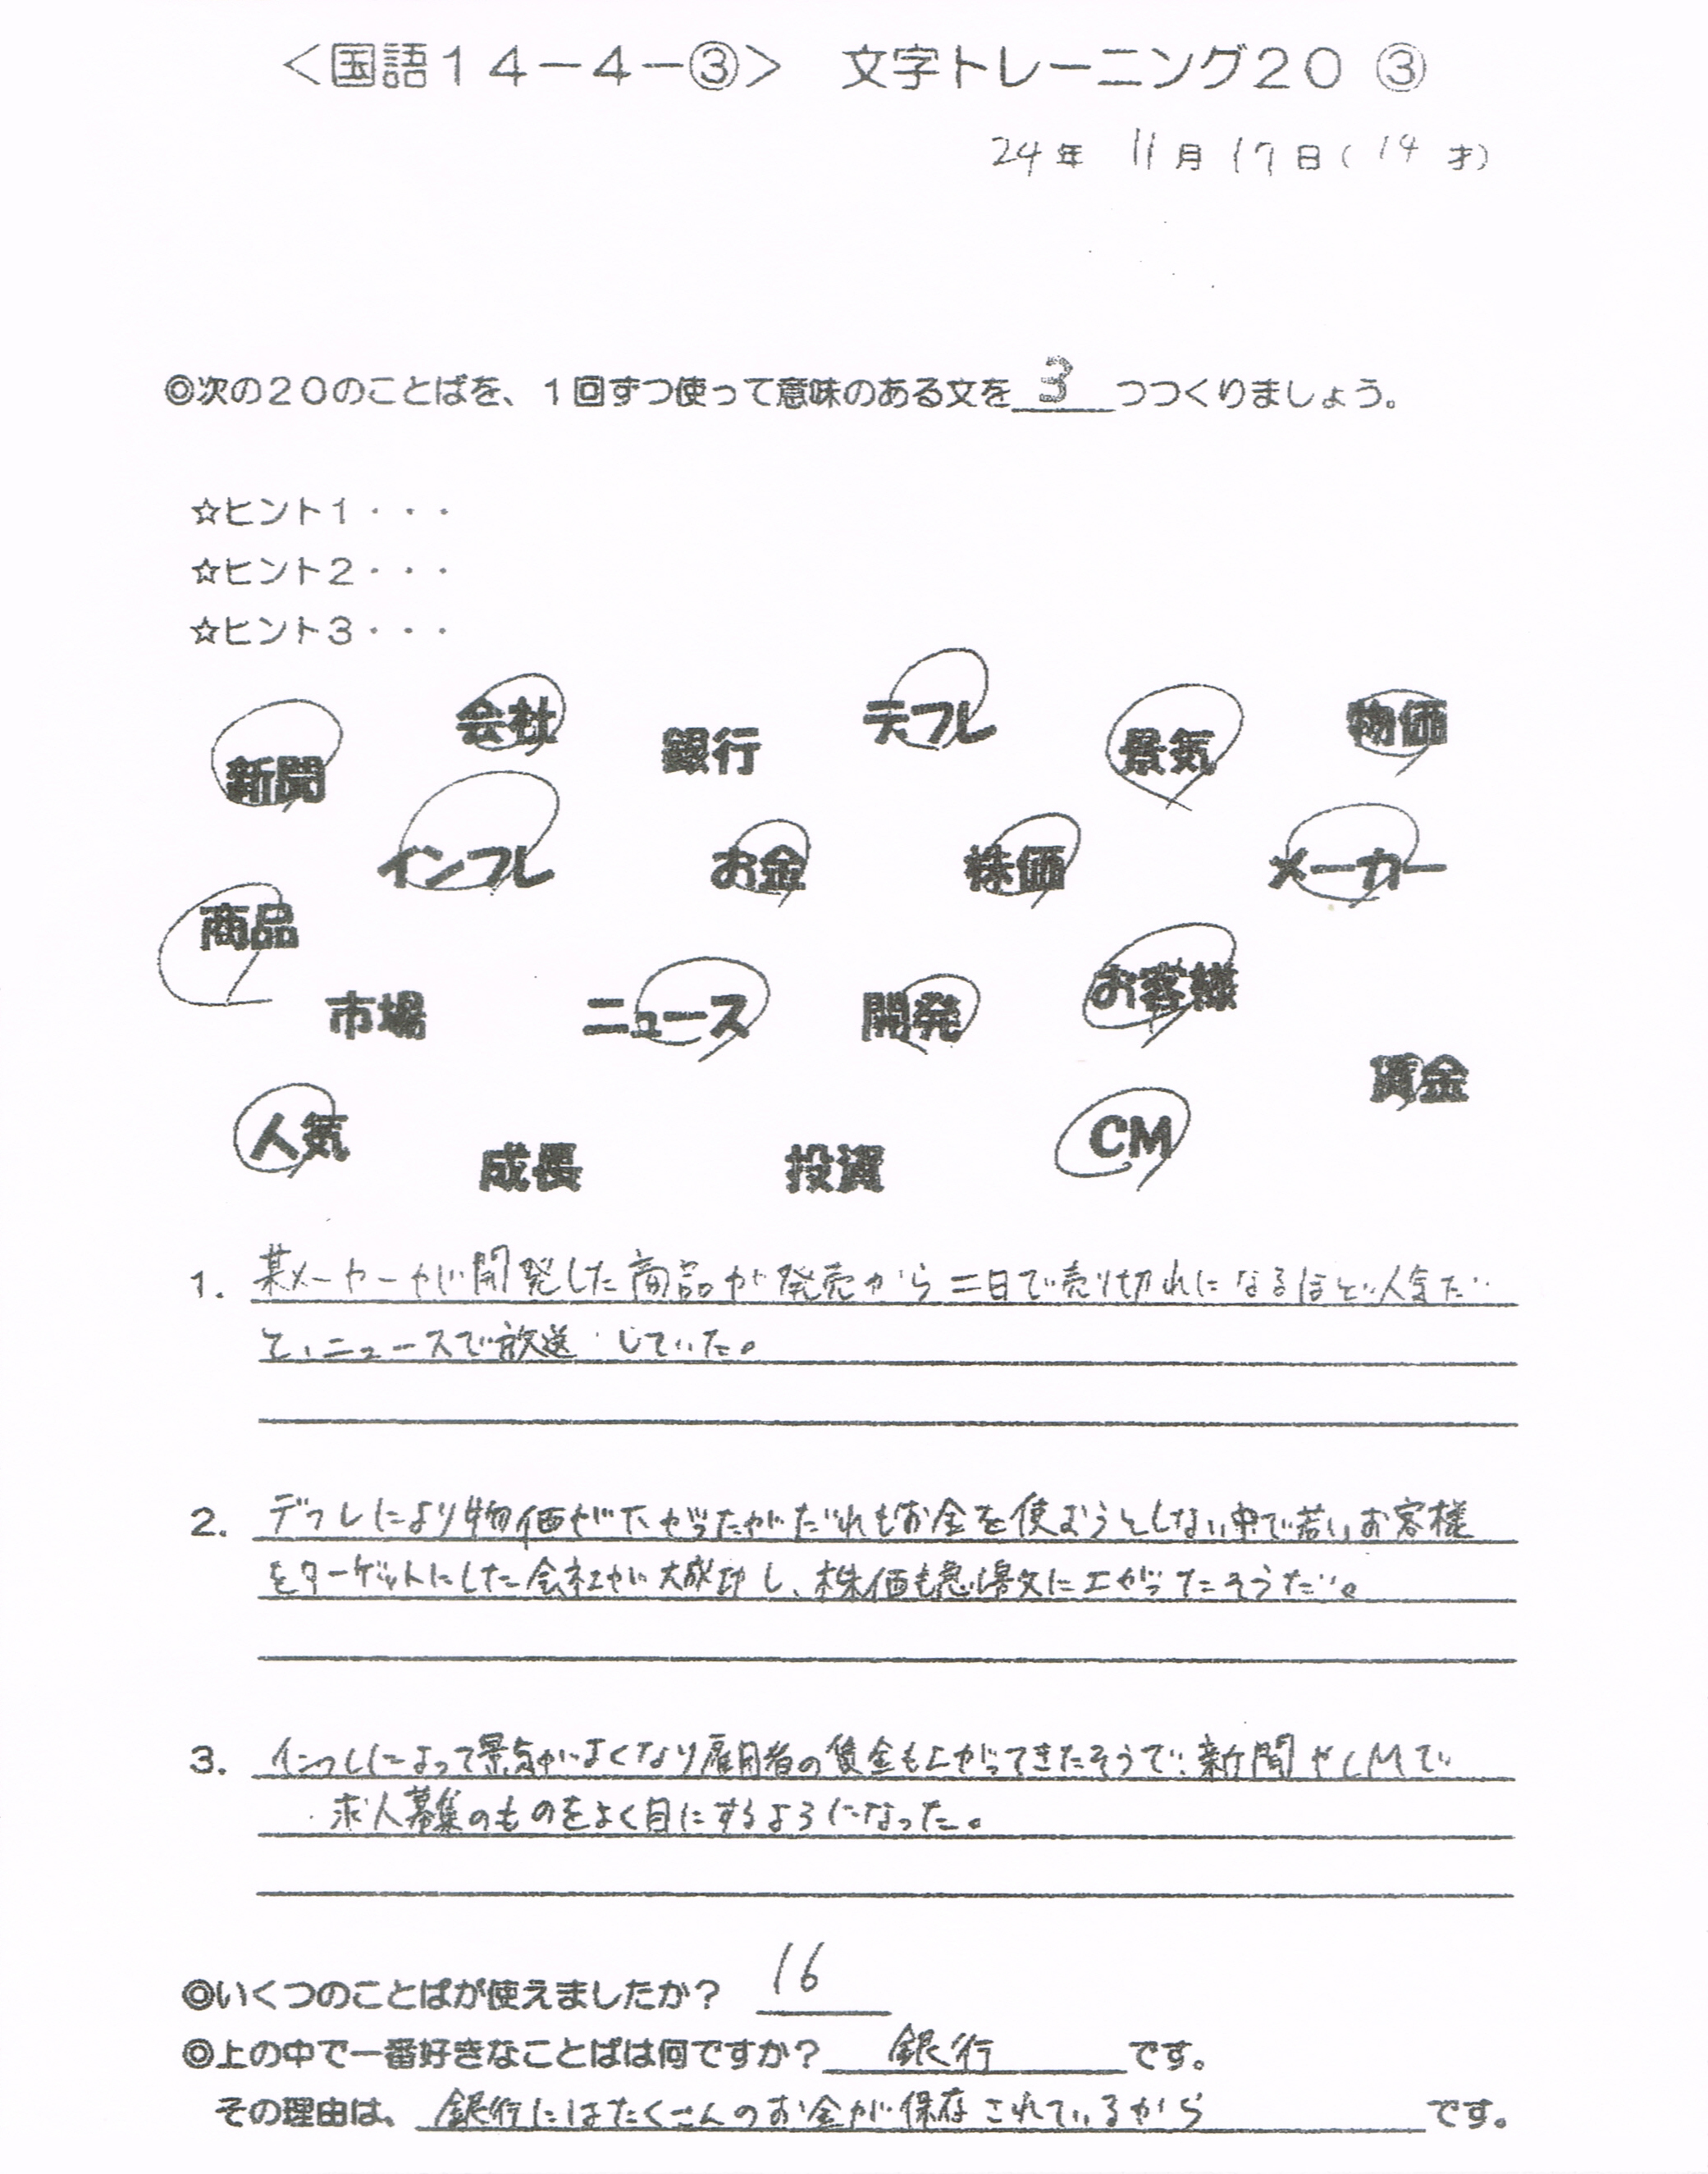 ＜国語１４－４－③＞　文字トレーニング２０ ③
24年 11月 17日（ 14 才）
◎次の２０のことばを、１回ずつ使って意味のある文を 3 つつくりましょう。
☆ヒント１・・・
☆ヒント２・・・
☆ヒント３・・・
新聞 会社 銀行 デフレ 景気 物価
インフレ お金 株価 メーカー
商品 市場 ニュース 開発 お客様
賃金
人気 成長 投資 CM
1. 某メーカーが開発した商品が発売から二日で売り切れになるほど人気だ
と、ニュースで放送していた。
2. デフレにより物価が下がったがだれもお金を使おうとしない中で若いお客様
をターゲットにした会社が大成功し、株価も急に上がったそうだ。
3. インフレによって景気がよくなり雇用者の賃金も上がってきたそうで、新聞やCMで
求人募集のものをよく目にするようになった。
◎いくつのことばが使えましたか？ 16
◎上の中で一番好きなことばは何ですか？ 銀行 です。
その理由は、 銀行にはたくさんのお金が保存されているから です。